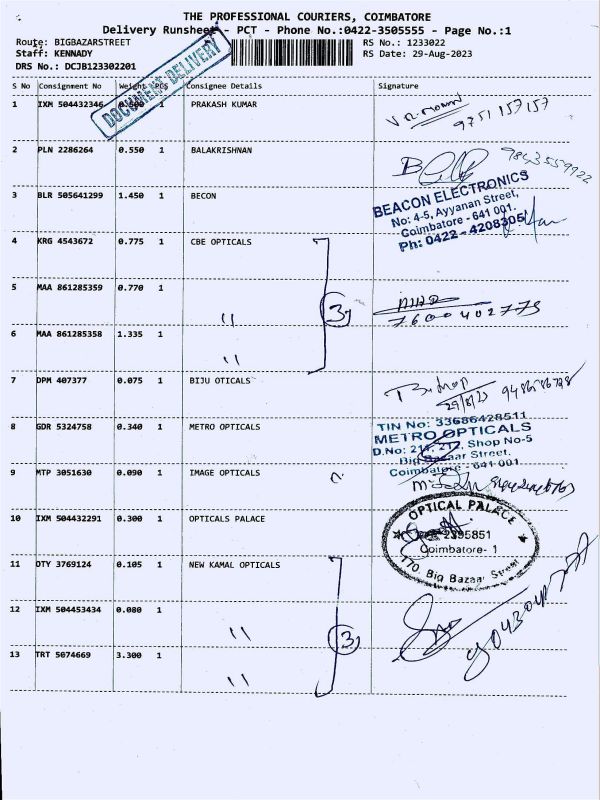 THE PROFESSIONAL COURIERS, COIMBATORE
Delivery Runsheet - PCT - Phone No.:0422-3505555 - Page No.:1
Route: BIGBAZARSTREET RS No.: 1233022
Staff: KENNADY RS Date: 29-Aug-2023
DRS No.: DCJB123302201
DOCUMENT DELIVERY
S No Consignment No Weight PCS Consignee Details Signature
1 IXM 504432346 0.500 1 PRAKASH KUMAR
9751 157157
2 PLN 2286264 0.550 1 BALAKRISHNAN
9843559922
3 BLR 505641299 1.450 1 BECON
BEACON ELECTRONICS
No: 4-5, Ayyanan Street,
Coimbatore - 641 001.
Ph: 0422 - 4208305
4 KRG 4543672 0.775 1 CBE OPTICALS
5 MAA 861285359 0.770 1 " 3
7600402775
6 MAA 861285358 1.335 1 "
7 DPM 407377 0.075 1 BIJU OTICALS
29/8/23
8 GDR 5324758 0.340 1 METRO OPTICALS
TIN No: 33686428511
METRO OPTICALS
D.No: 211, 212, Shop No-5
Big Bazaar Street.
Coimbatore - 641 001
9 MTP 3051630 0.090 1 IMAGE OPTICALS
10 IXM 504432291 0.300 1 OPTICALS PALACE
OPTICAL PALACE
2395851
Coimbatore- 1
170, Big Bazaar Street
11 OTY 3769124 0.105 1 NEW KAMAL OPTICALS
12 IXM 504453434 0.080 1 " 3
13 TRT 5074669 3.300 1 "